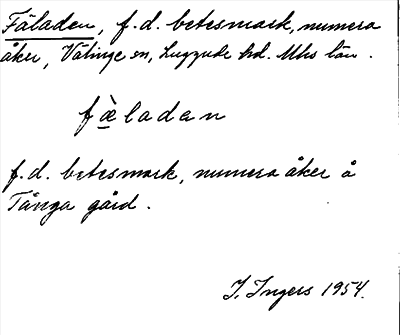 Fäladen, f.d. betesmark, numera
åker, Välinge sn, Luggude hd. Mhs län.
fæ̀ladan
f.d. betesmark, numera åker å
Tånga gård.
I. Ingers 1954.